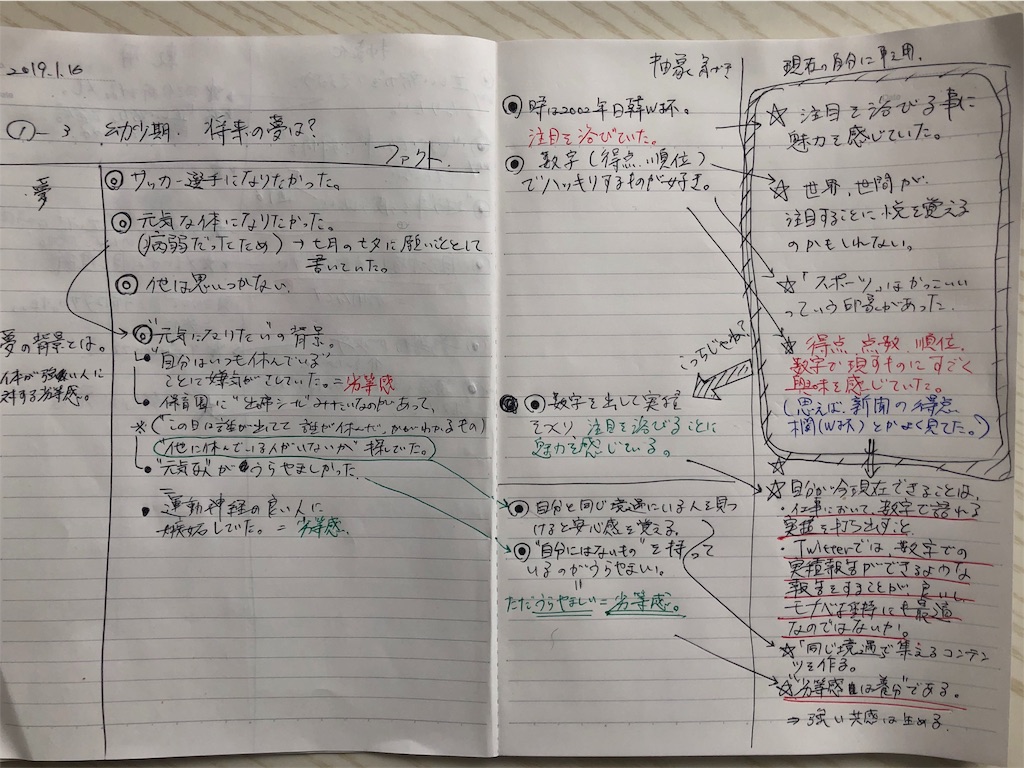 2019.1.16
①-3 幼少期. 将来の夢は?
ファクト.
夢
サッカー選手になりたかった。
元気な体になりたかった。
(病弱だったため) → 七月の七夕に願いごととして
書いていた。
他は思いつかない.
夢の背景とは。
体が強い人に
対する劣等感。
"元気になりたい"の背景。
"自分はいつも休んでいる"
ことに嫌気がさしていた。=劣等感
保育園に"出席シール"みたいなのがあって、
※("この日は誰が出てて 誰が休んだ"かがわかるもの)
"他に休んでいる人がいないか"探していた。
"元気"がうらやましかった
運動神経の良い人に
嫉妬していた。=劣等感.
抽象 気づき
時は2002年日韓W杯。
注目を浴びていた。
数字(得点.順位)
でハッキリするものが好き。
こっちじゃね?
数字を出して実証
注目を浴びることに
魅力を感じている。
自分と同じ境遇にいる人を見つ
けると安心感を覚える。
"自分にはないもの"を持って
いるのがうらやましい。
=
ただうらやましい=劣等感。
現在の自分に転用.
☆ 注目を浴びる事に
魅力を感じていた。
☆ 世界、世間が、
注目することに悦を覚える
のかもしれない。
☆「スポーツ」はかっこいい
っていう印象があった.
☆ 得点、点数、順位、
数字で現すものにすごく
興味を感じていた。
(思えば、新聞の得点
欄(W杯)とかよく見てた。)
☆
☆自分が今現在できることは、
・仕事において、数字で語れる
実績を打ち出すこと
・Twitterでは、数字での
実績報告ができるような
報告をすることが、良いし、
モチベ維持にも最適
なのではないか!
☆「同じ境遇で集えるコンテン
ツを作る。
☆"劣等感は養分"である。
⇒ 強い共感は生める.